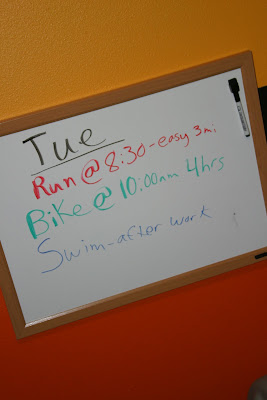 Tue
Run @ 8:30-easy 3mi
Bike @ 10:00am 4hrs
Swim-after work